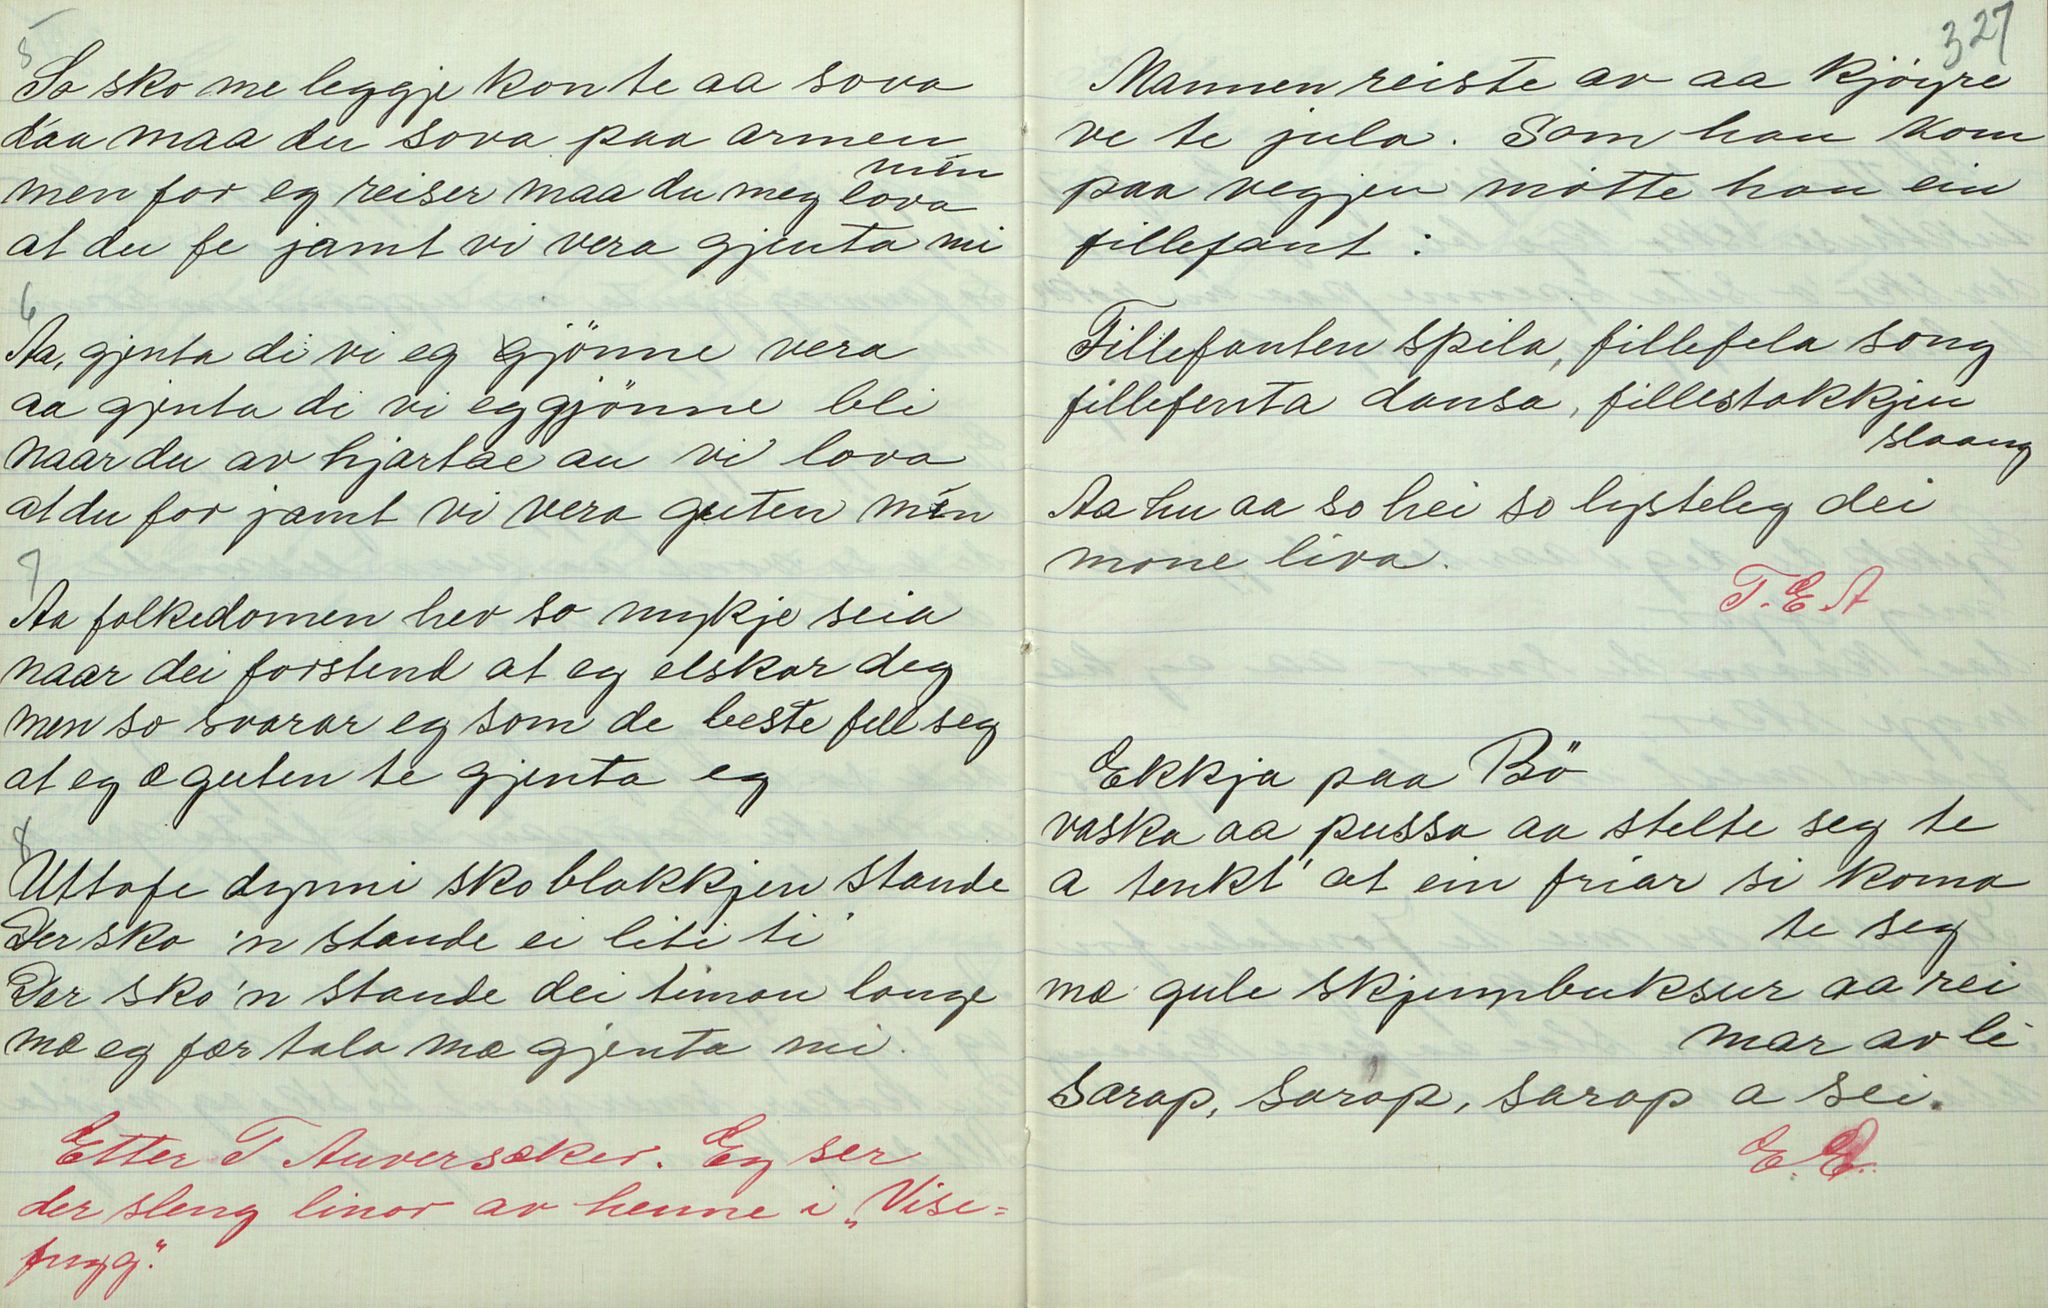 5
So sko me leggje kon te aa sova
daa maa du sova paa armen
men
men for eg reiser maa du meg lova
at du fe jamt vi vera gjenta mi
6
Aa, gjenta di vi eg gjönne vera
aa gjenta di vi eg gjönne bli
naar du av hjartae au vi lova
at du for jamt vi vera guten min
7
Aa folkedomen hev so mykje seia
naar dei forstend at eg elskar deg
men so svarar eg som de beste fell seg
at eg æ guten te gjenta eg
8
Uttafe dynni sko blakkjen stande
Der sko 'n stande ei liti ti
Der sko 'n stande dei timan lange
mæ eg fær tala mæ gjenta mi.
Etter T Auversæker. Eg ser
der sleng linor av henne i „Vise=
fugg".
327
Mannen reiste av aa kjöyre
ve te jula. Som han kom
paa vegjen mötte han ein
fillefant:
Fillefanten spila, fillefela song
fillefenta dansa, fillestakkjen
slaang
Aa hu aa so hei so lysteleg dei
mone liva.
T. E A
Ekkja paa Bö
vaska aa pussa aa stelte seg te
a tenkt' at ein friar si koma
te seg
mæ gule skjinnbuksur aa rei
mær av le
særap, sarap, sarap a sei.
E. E.